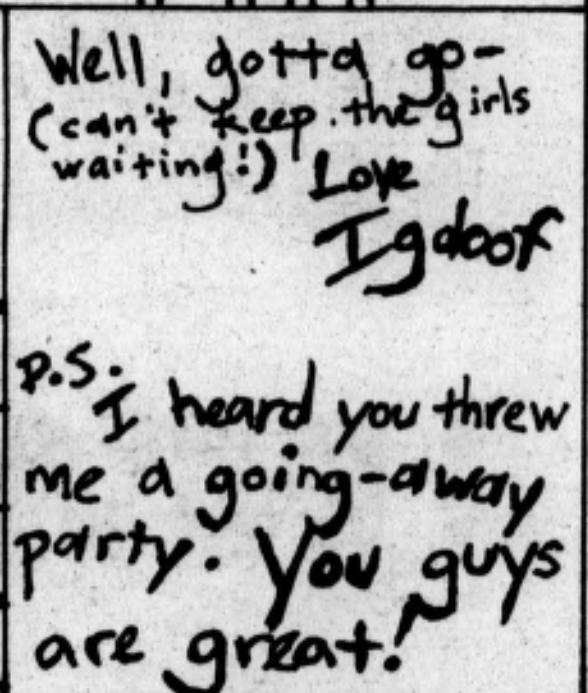 Well, gotta go-
(can't keep the girls
waiting!) Love
Igdoof
P.S.
I heard you threw
me a going-away
party. You guys
are great!